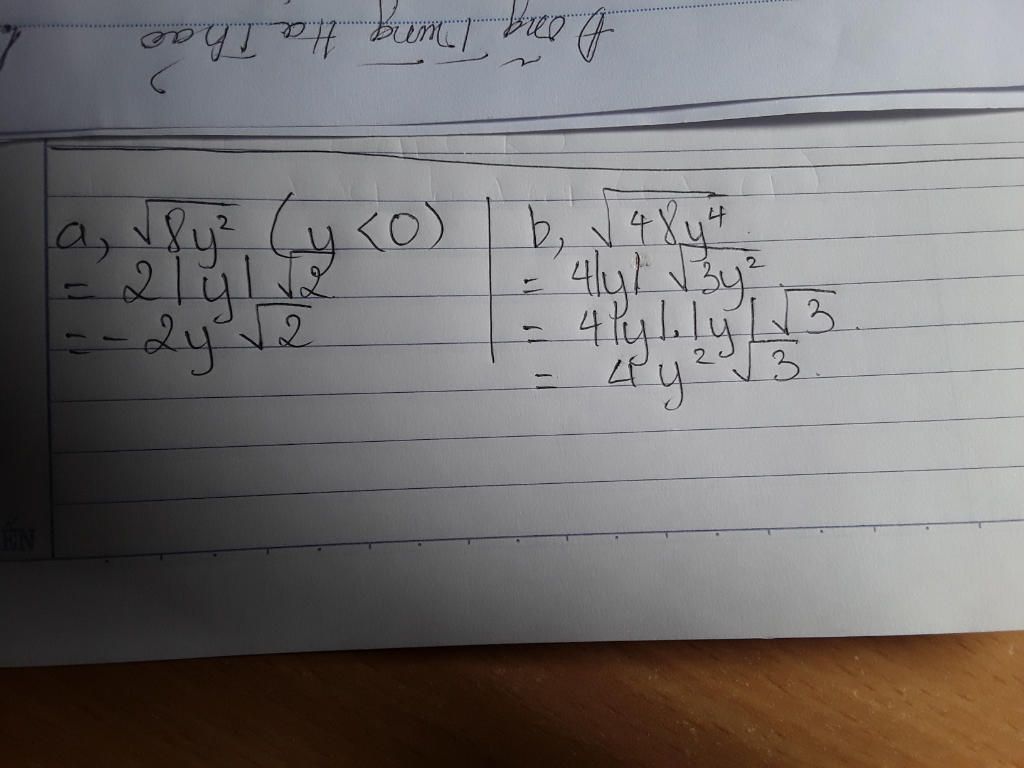 Đồng Trung Hà Thảo
a, √8y² (y < 0)
= 2|y|√2
= -2y√2
b, √48y⁴
= 4|y| √3y²
= 4|y|.|y|√3.
= 4y²√3.
ẾN